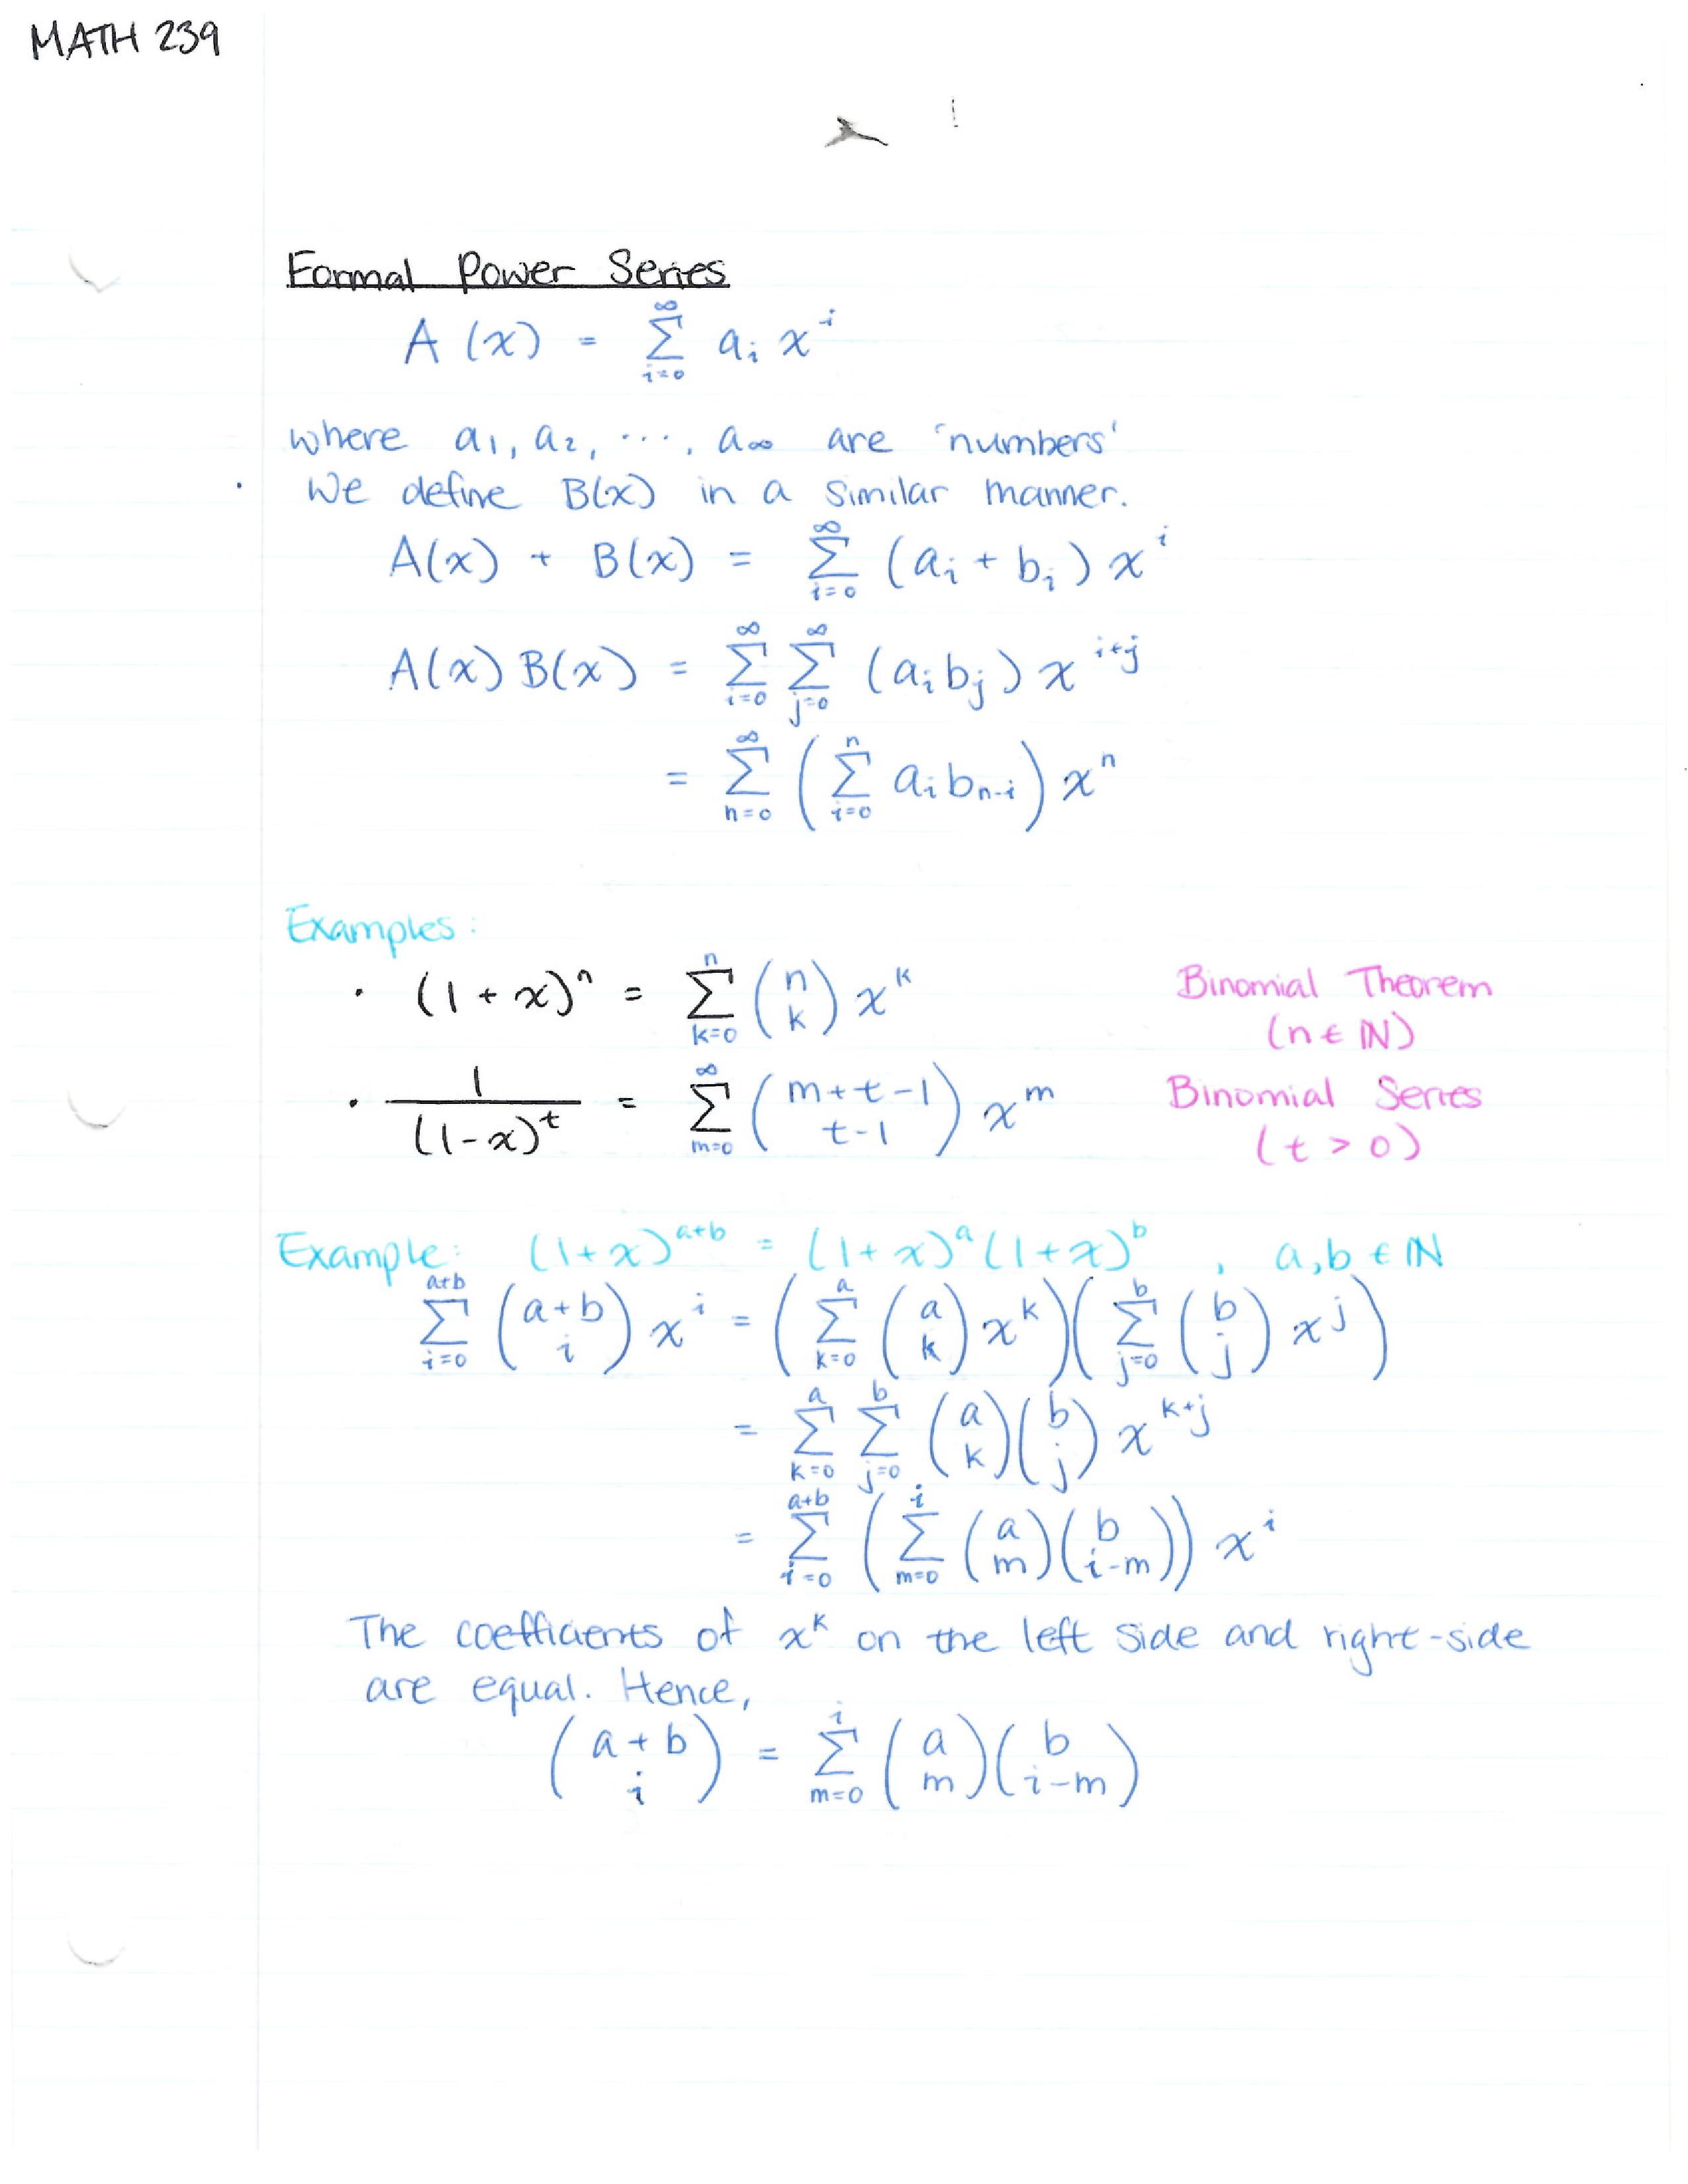 MATH 239
Formal Power Series
A(x) = \sum_{i=0}^{∞} a_i x^i
where a_1, a_2, ···, a_∞ are 'numbers'
· We define B(x) in a similar manner.
A(x) + B(x) = \sum_{i=0}^{∞} (a_i + b_i) x^i
A(x) B(x) = \sum_{i=0}^{∞} \sum_{j=0}^{∞} (a_i b_j) x^{i+j}
= \sum_{n=0}^{∞} ( \sum_{i=0}^{n} a_i b_{n-i} ) x^n
Examples:
· (1 + x)^n = \sum_{k=0}^{n} \binom{n}{k} x^k Binomial Theorem
(n ∈ ℕ)
· \frac{1}{(1-x)^t} = \sum_{m=0}^{∞} \binom{m+t-1}{t-1} x^m Binomial Series
(t > 0)
Example: (1+x)^{a+b} = (1+x)^a (1+x)^b , a,b ∈ ℕ
\sum_{i=0}^{a+b} \binom{a+b}{i} x^i = ( \sum_{k=0}^{a} \binom{a}{k} x^k )( \sum_{j=0}^{b} \binom{b}{j} x^j )
= \sum_{k=0}^{a} \sum_{j=0}^{b} \binom{a}{k} \binom{b}{j} x^{k+j}
= \sum_{i=0}^{a+b} ( \sum_{m=0}^{i} \binom{a}{m} \binom{b}{i-m} ) x^i
The coefficients of x^k on the left side and right-side
are equal. Hence,
\binom{a+b}{i} = \sum_{m=0}^{i} \binom{a}{m} \binom{b}{i-m}